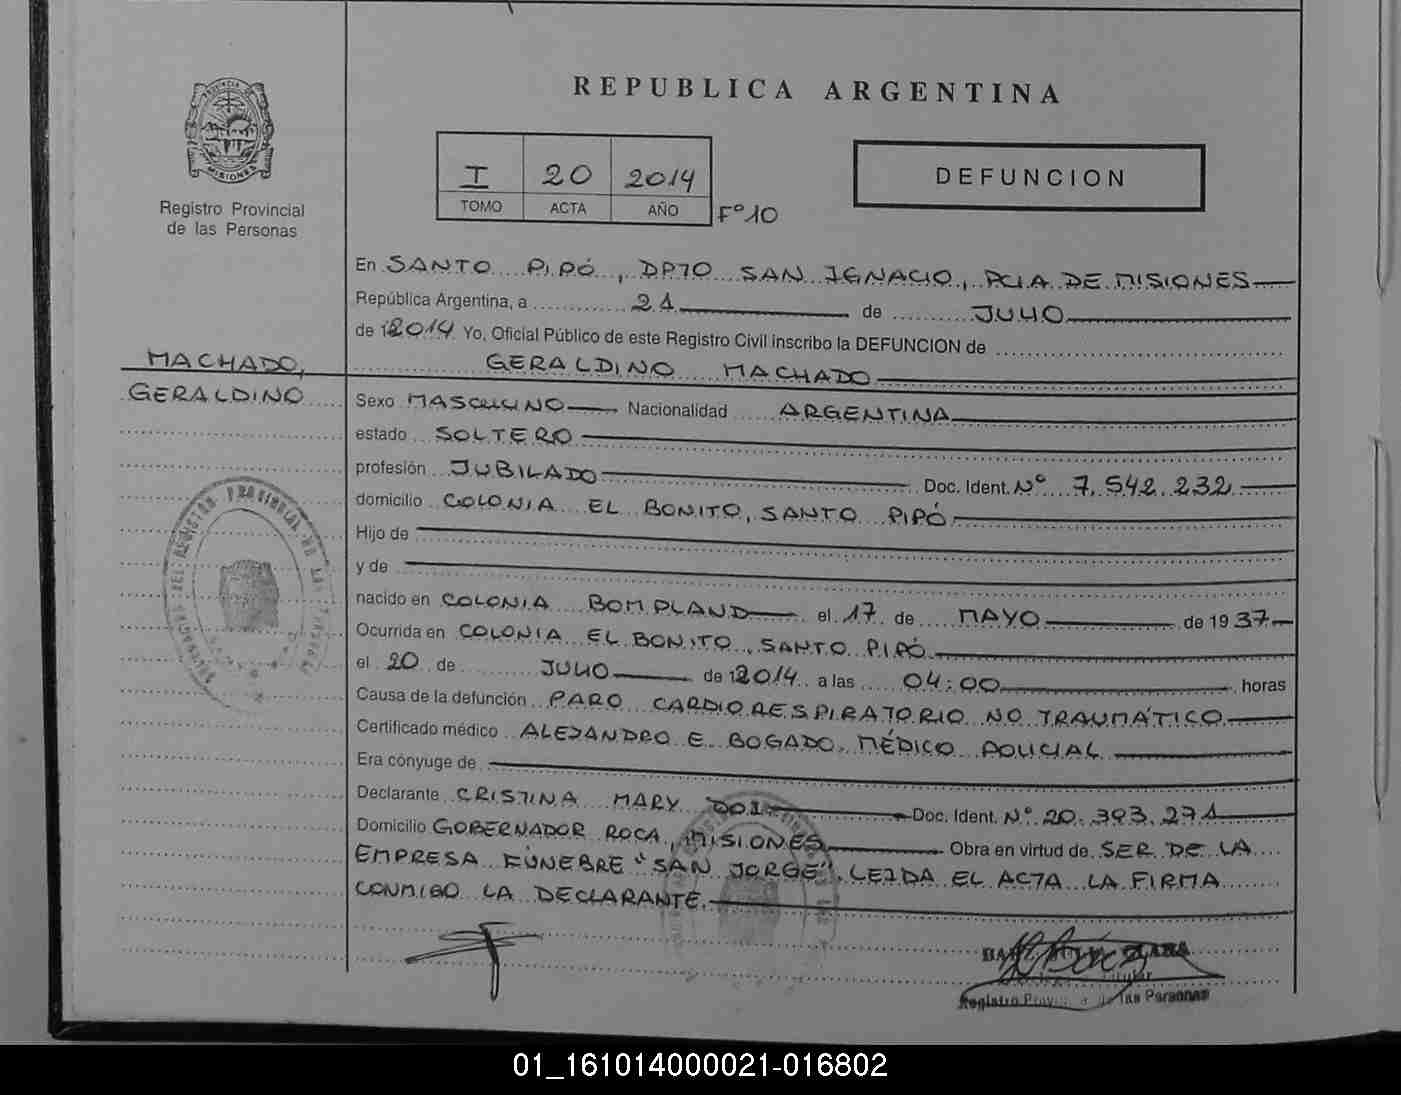 REPUBLICA ARGENTINA
PROVINCIA DE
MISIONES
Registro Provincial
de las Personas
I 20 2014
TOMO ACTA AÑO Fº10
DEFUNCION
En SANTO PIPÓ, DPTO SAN IGNACIO, PCIA DE MISIONES
República Argentina, a 21 de JULIO
de 2014 Yo, Oficial Público de este Registro Civil inscribo la DEFUNCION de
GERALDINO MACHADO
MACHADO,
GERALDINO
Sexo MASCULINO Nacionalidad ARGENTINA
estado SOLTERO
profesión JUBILADO Doc. Ident. Nº 7.542.232
domicilio COLONIA EL BONITO, SANTO PIPÓ
Hijo de
y de
nacido en COLONIA BOMPLAND el 17 de MAYO de 1937
Ocurrida en COLONIA EL BONITO, SANTO PIPÓ
el 20 de JULIO de 2014 a las 04:00 horas
Causa de la defunción PARO CARDIORESPIRATORIO NO TRAUMÁTICO
Certificado médico ALEJANDRO E. BOGADO, MÉDICO POLICIAL
Era cónyuge de
Declarante CRISTINA MARY DOI Doc. Ident. Nº 20.393.271
Domicilio GOBERNADOR ROCA, MISIONES Obra en virtud de SER DE LA
EMPRESA FÚNEBRE "SAN JORGE". LEIDA EL ACTA LA FIRMA
CONMIGO LA DECLARANTE.
Registro de las Personas
01_161014000021-016802